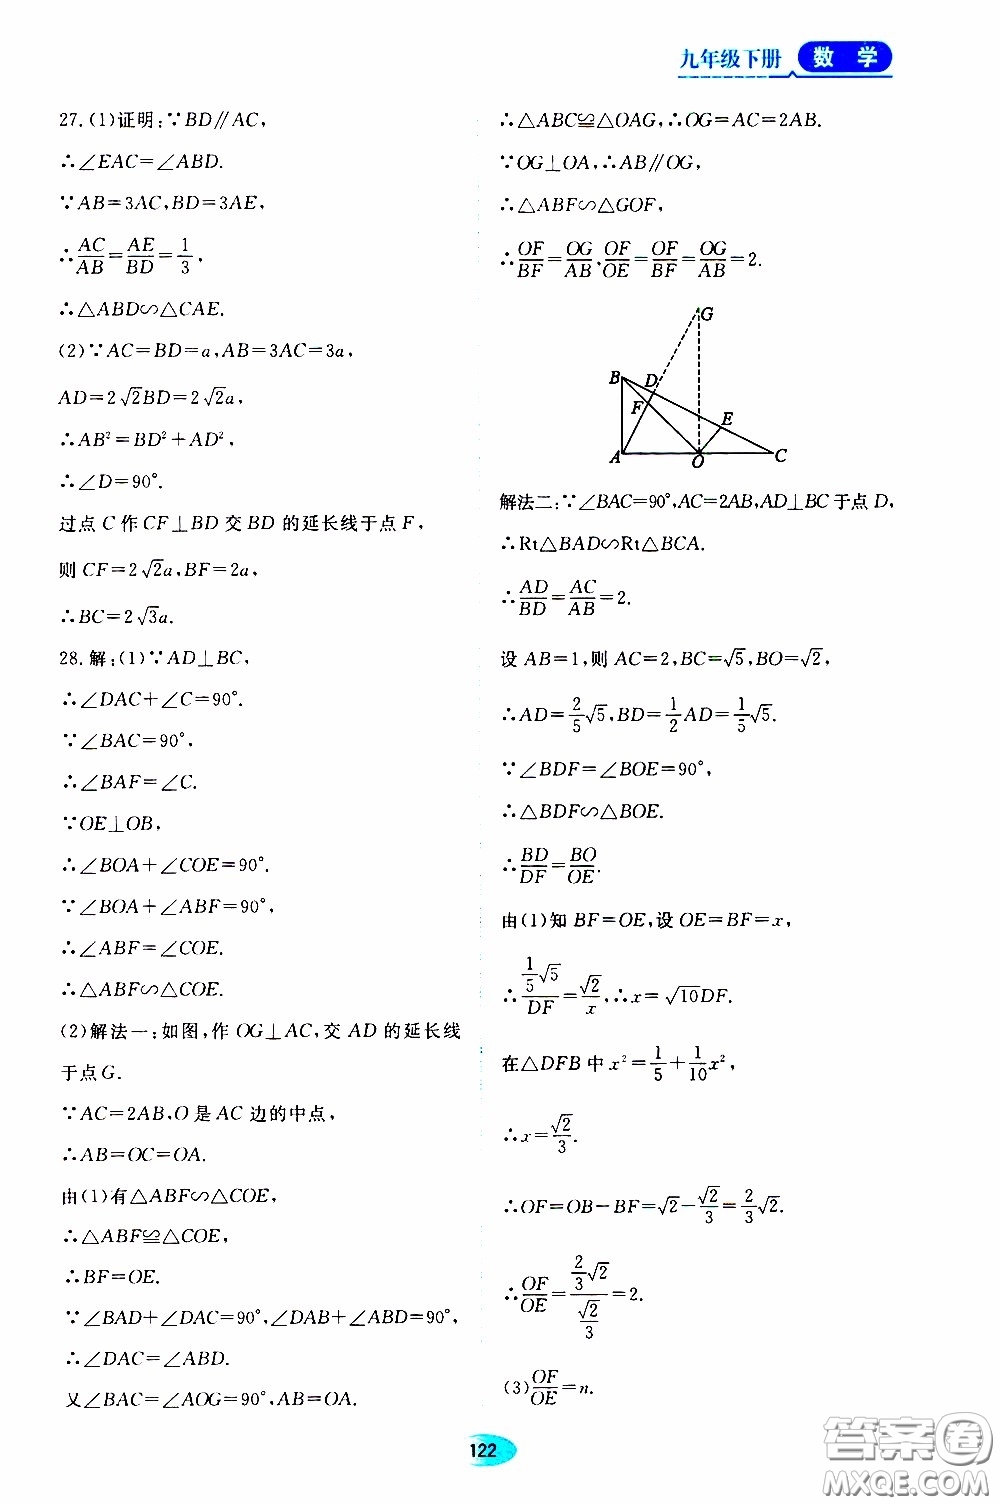 九年级下册 数 学
27.(1)证明:∵BD∥AC,
∴∠EAC=∠ABD.
∵AB=3AC,BD=3AE,
∴AC/AB=AE/BD=1/3,
∴△ABD∽△CAE.
(2)∵AC=BD=a,AB=3AC=3a,
AD=2√2BD=2√2a,
∴AB²=BD²+AD²,
∴∠D=90°.
过点C作CF⊥BD交BD的延长线于点F,
则CF=2√2a,BF=2a,
∴BC=2√3a.
28.解:(1)∵AD⊥BC,
∴∠DAC+∠C=90°.
∵∠BAC=90°,
∴∠BAF=∠C.
∵OE⊥OB,
∴∠BOA+∠COE=90°.
∵∠BOA+∠ABF=90°,
∴∠ABF=∠COE.
∴△ABF∽△COE.
(2)解法一:如图,作OG⊥AC,交AD的延长线
于点G.
∵AC=2AB,O是AC边的中点,
∴AB=OC=OA.
由(1)有△ABF∽△COE,
∴△ABF≌△COE,
∴BF=OE.
∵∠BAD+∠DAC=90°,∠DAB+∠ABD=90°,
∴∠DAC=∠ABD.
又∠BAC=∠AOG=90°,AB=OA.
∴△ABC≌△OAG,∴OG=AC=2AB.
∵OG⊥OA,∴AB∥OG,
∴△ABF∽△GOF,
∴OF/BF=OG/AB,OF/OE=OF/BF=OG/AB=2.
G
B D
F E
A O C
解法二:∵∠BAC=90°,AC=2AB,AD⊥BC于点D,
∴Rt△BAD∽Rt△BCA.
∴AD/BD=AC/AB=2.
设AB=1,则AC=2,BC=√5,BO=√2,
∴AD=2/5√5,BD=1/2AD=1/5√5.
∵∠BDF=∠BOE=90°,
∴△BDF∽△BOE.
∴BD/DF=BO/OE.
由(1)知BF=OE,设OE=BF=x,
∴(1/5√5)/DF=√2/x,∴x=√10DF.
在△DFB中x²=1/5+1/10x²,
∴x=√2/3.
∴OF=OB-BF=√2-√2/3=2/3√2.
∴OF/OE=(2/3√2)/(√2/3)=2.
(3)OF/OE=n.
122
答案圈
MXQE.COM